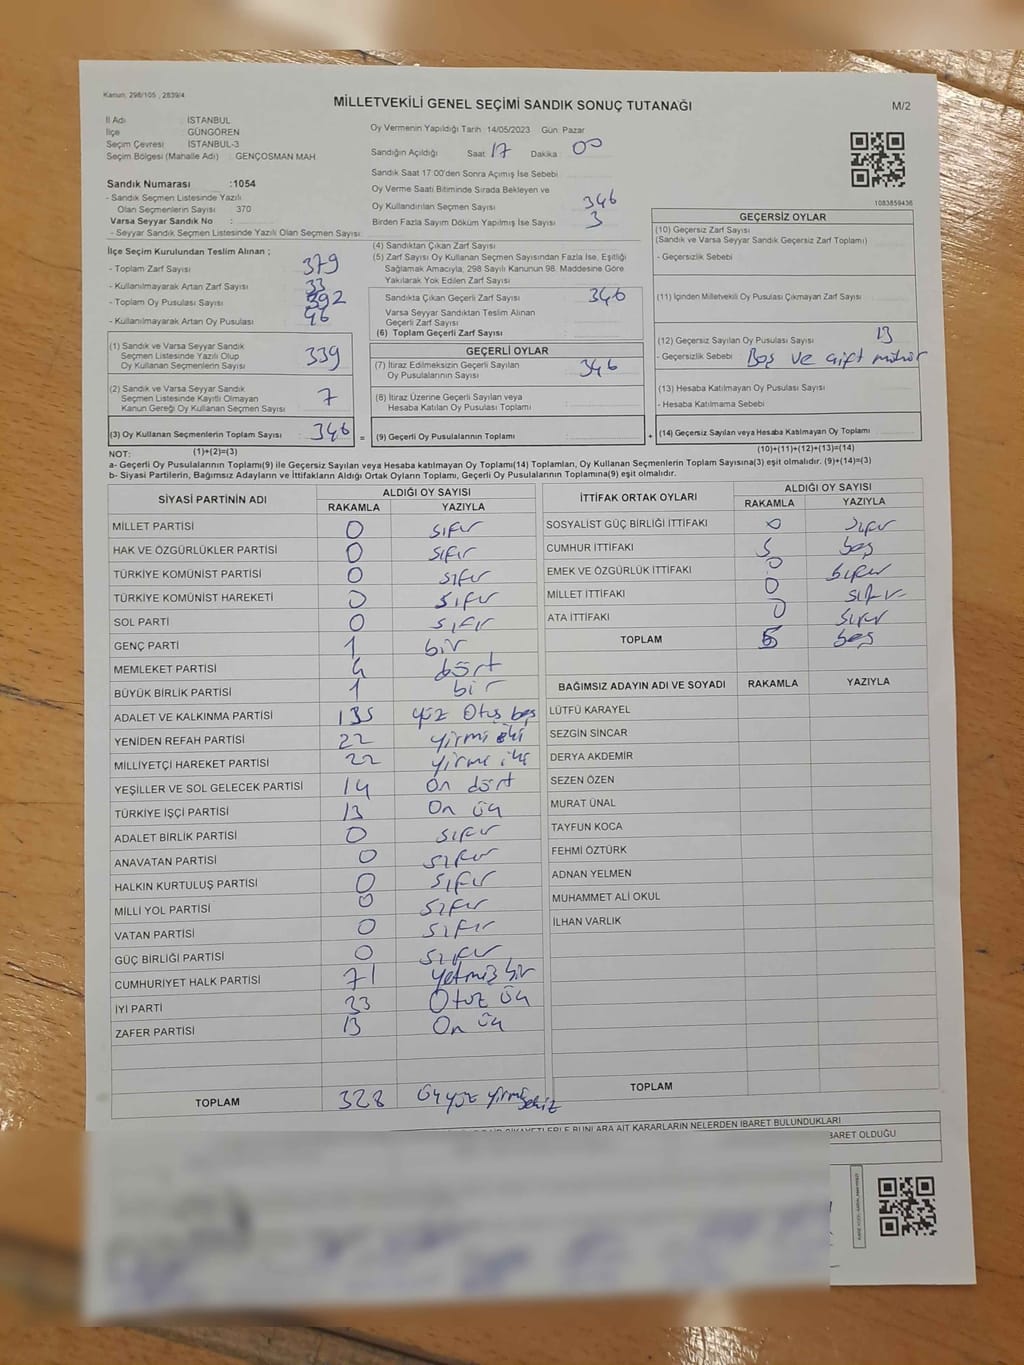 Kanun: 298/105 ; 2839/4
MİLLETVEKİLİ GENEL SEÇİMİ SANDIK SONUÇ TUTANAĞI
M/2
İl Adı : İSTANBUL
İlçe GÜNGÖREN
Seçim Çevresi İSTANBUL-3
Seçim Bölgesi (Mahalle Adı) : GENÇOSMAN MAH.
Sandık Numarası :1054
- Sandık Seçmen Listesinde Yazılı
Olan Seçmenlerin Sayısı 370
Varsa Seyyar Sandık No :
- Seyyar Sandık Seçmen Listesinde Yazılı Olan Seçmen Sayısı:
İlçe Seçim Kurulundan Teslim Alınan ;
- Toplam Zarf Sayısı : 379
- Kullanılmayarak Artan Zarf Sayısı : 33
- Toplam Oy Pusulası Sayısı : 392
- Kullanılmayarak Artan Oy Pusulası : 46
(1) Sandık ve Varsa Seyyar Sandık
Seçmen Listesinde Yazılı Olup
Oy Kullanan Seçmenlerin Sayısı : 339
(2) Sandık ve Varsa Seyyar Sandık
Seçmen Listesinde Kayıtlı Olmayan
Kanun Gereği Oy Kullanan Seçmen Sayısı : 7
(3) Oy Kullanan Seçmenlerin Toplam Sayısı : 346
(1)+(2)=(3)
Oy Vermenin Yapıldığı Tarih 14/05/2023 Gün Pazar
Sandığın Açıldığı Saat 17 Dakika 00
Sandık Saat 17:00'den Sonra Açımış İse Sebebi
Oy Verme Saati Bitiminde Sırada Bekleyen ve
Oy Kullandırılan Seçmen Sayısı 346
Birden Fazla Sayım Döküm Yapılmış İse Sayısı 3
(4) Sandıktan Çıkan Zarf Sayısı
(5) Zarf Sayısı Oy Kullanan Seçmen Sayısından Fazla İse, Eşitliği
Sağlamak Amacıyla, 298 Sayılı Kanunun 98. Maddesine Göre
Yakılarak Yok Edilen Zarf Sayısı
Sandıkta Çıkan Geçerli Zarf Sayısı 346
Varsa Seyyar Sandıktan Teslim Alınan
Geçerli Zarf Sayısı
(6) Toplam Geçerli Zarf Sayısı
GEÇERLİ OYLAR
(7) İtiraz Edilmeksizin Geçerli Sayılan
Oy Pusulalarının Sayısı : 346
(8) İtiraz Üzerine Geçerli Sayılan veya
Hesaba Katılan Oy Pusulası Toplamı
= (9) Geçerli Oy Pusulalarının Toplamı
1083859436
GEÇERSİZ OYLAR
(10) Geçersiz Zarf Sayısı
(Sandık ve Varsa Seyyar Sandık Geçersiz Zarf Toplamı)
- Geçersizlik Sebebi
(11) İçinden Milletvekili Oy Pusulası Çıkmayan Zarf Sayısı
(12) Geçersiz Sayılan Oy Pusulası Sayısı 13
- Geçersizlik Sebebi Boş ve çift mühür
(13) Hesaba Katılmayan Oy Pusulası Sayısı
- Hesaba Katılmama Sebebi
+ (14) Geçersiz Sayılan veya Hesaba Katılmayan Oy Toplamı
(10)+(11)+(12)+(13)=(14)
NOT:
a- Geçerli Oy Pusulalarının Toplamı(9) ile Geçersiz Sayılan veya Hesaba katılmayan Oy Toplamı(14) Toplamları, Oy Kullanan Seçmenlerin Toplam Sayısına(3) eşit olmalıdır. (9)+(14)=(3)
b- Siyasi Partilerin, Bağımsız Adayların ve İttifakların Aldığı Ortak Oyların Toplamı, Geçerli Oy Pusulalarının Toplamına(9) eşit olmalıdır.
SİYASİ PARTİNİN ADI ALDIĞI OY SAYISI
RAKAMLA YAZIYLA
MİLLET PARTİSİ 0 sıfır
HAK VE ÖZGÜRLÜKLER PARTİSİ 0 sıfır
TÜRKİYE KOMÜNİST PARTİSİ 0 sıfır
TÜRKİYE KOMÜNİST HAREKETİ 0 sıfır
SOL PARTİ 0 sıfır
GENÇ PARTİ 1 bir
MEMLEKET PARTİSİ 4 dört
BÜYÜK BİRLİK PARTİSİ 1 bir
ADALET VE KALKINMA PARTİSİ 135 yüz Otuş beş
YENİDEN REFAH PARTİSİ 22 yirmi iki
MİLLİYETÇİ HAREKET PARTİSİ 22 yirmi iki
YEŞİLLER VE SOL GELECEK PARTİSİ 14 On dört
TÜRKİYE İŞÇİ PARTİSİ 13 On üç
ADALET BİRLİK PARTİSİ 0 sıfır
ANAVATAN PARTİSİ 0 sıfır
HALKIN KURTULUŞ PARTİSİ 0 sıfır
MİLLİ YOL PARTİSİ 0 sıfır
VATAN PARTİSİ 0 sıfır
GÜÇ BİRLİĞİ PARTİSİ 0 sıfır
CUMHURİYET HALK PARTİSİ 71 yetmiş bir
İYİ PARTİ 33 Otuz üç
ZAFER PARTİSİ 13 On üç
TOPLAM 328 üçyüz yirmi sekiz
İTTİFAK ORTAK OYLARI ALDIĞI OY SAYISI
RAKAMLA YAZIYLA
SOSYALİST GÜÇ BİRLİĞİ İTTİFAKI 0 sıfır
CUMHUR İTTİFAKI 5 beş
EMEK VE ÖZGÜRLÜK İTTİFAKI 0 sıfır
MİLLET İTTİFAKI 0 sıfır
ATA İTTİFAKI 0 sıfır
TOPLAM 5 beş
BAĞIMSIZ ADAYIN ADI VE SOYADI RAKAMLA YAZIYLA
LÜTFÜ KARAYEL
SEZGİN SİNCAR
DERYA AKDEMİR
SEZEN ÖZEN
MURAT ÜNAL
TAYFUN KOCA
FEHMİ ÖZTÜRK
ADNAN YELMEN
MUHAMMET ALİ OKUL
İLHAN VARLIK
TOPLAM
ŞİKAYETLERLE BUNLARA AİT KARARLARIN NELERDEN İBARET BULUNDUKLARI
BARET OLDUĞU